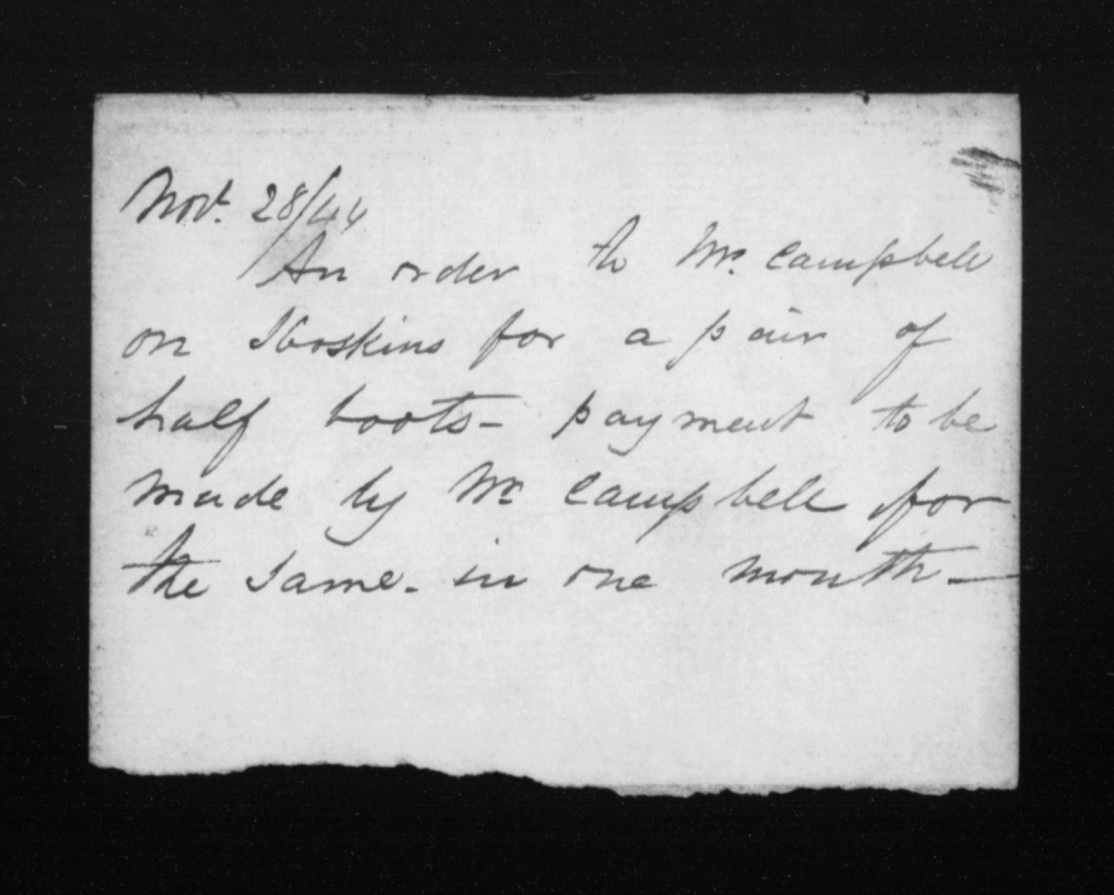 Novr. 28/44
An order to Mr. Campbell
on Hoskins for a pair of
half boots - payment to be
made by Mr Campbell for
the same - in one month -